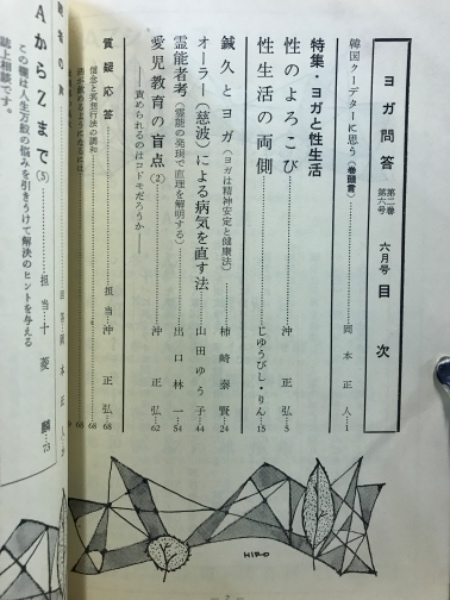 ヨガ問答 第二巻 第六号 六月号 目次
韓国クーデターに思う(巻頭言)……岡本正人…1
特集・ヨガと性生活
性のよろこび……沖正弘…5
性生活の両側……じゅうびし・りん…15
鍼灸とヨガ(ヨガは精神安定と健康法)……柿崎泰賢…24
オーラー(慈波)による病気を直す法……山田ゆう子…44
霊能者考(霊能の発現で真理を解明する)……出口林一…54
愛児教育の盲点(2)……沖正弘…62
――責められるのはコドモだろうか――
質疑応答……担当沖正弘…68
信念と冥想行法の調和……68
AからZまで(5)……担当十菱麟…73
この欄は人生万般の悩みを引きうけて解決のヒントを与える
誌上相談です。
HIRO